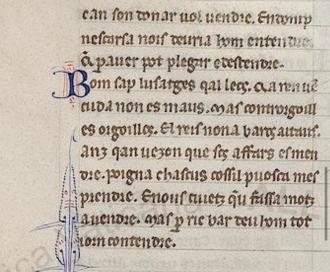 can son donar uol uendre. Entomp
nescarsa nois deuria hom entendre.
Q̃ pauer pot plegar edestendre.
Bom sap lusatges qai lecs. &aren uē
cuda non es maus. Mas controrgoill
es orgoillcs. El reis non a bartç autans.
anz qan uezon que ses affars es men
dre. poigna chascus cossil puosca mes
prendre. Enous cuietz qu fassa motz
auendre. mas per ric bar deu hom tot
iorn contendre.